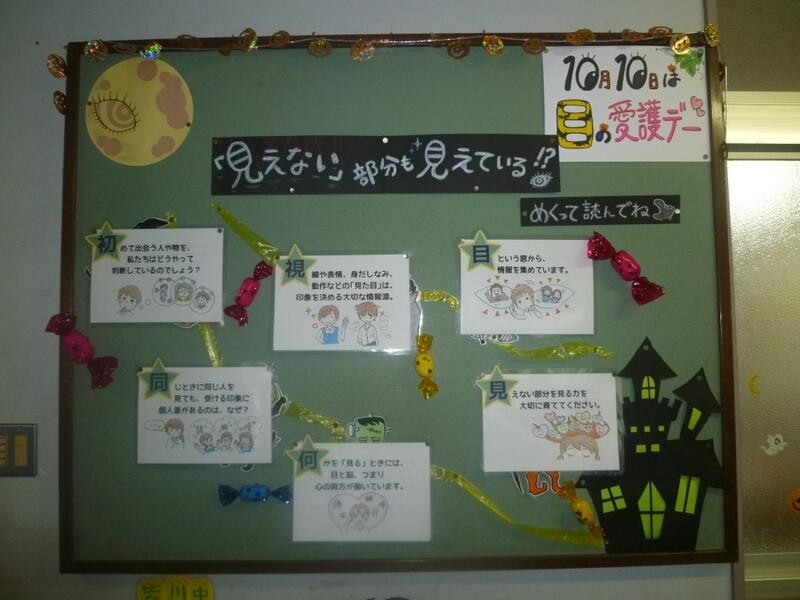 10月10日は
目の愛護デー
「見えない」部分も見えている!?
めくって読んでね
初めて出会う人や物を、
私たちはどうやって
判断しているのでしょう?
視線や表情、身だしなみ、
動作などの「見た目」は、
印象を決める大切な情報源。
目という窓から、
情報を集めています。
同じときに同じ人を
見ても、受ける印象に
個人差があるのは、なぜ?
何かを「見る」ときには、
目と脳、つまり
心の両方が働いています。
見えない部分を見る力を
大切に育ててください。
皆川中